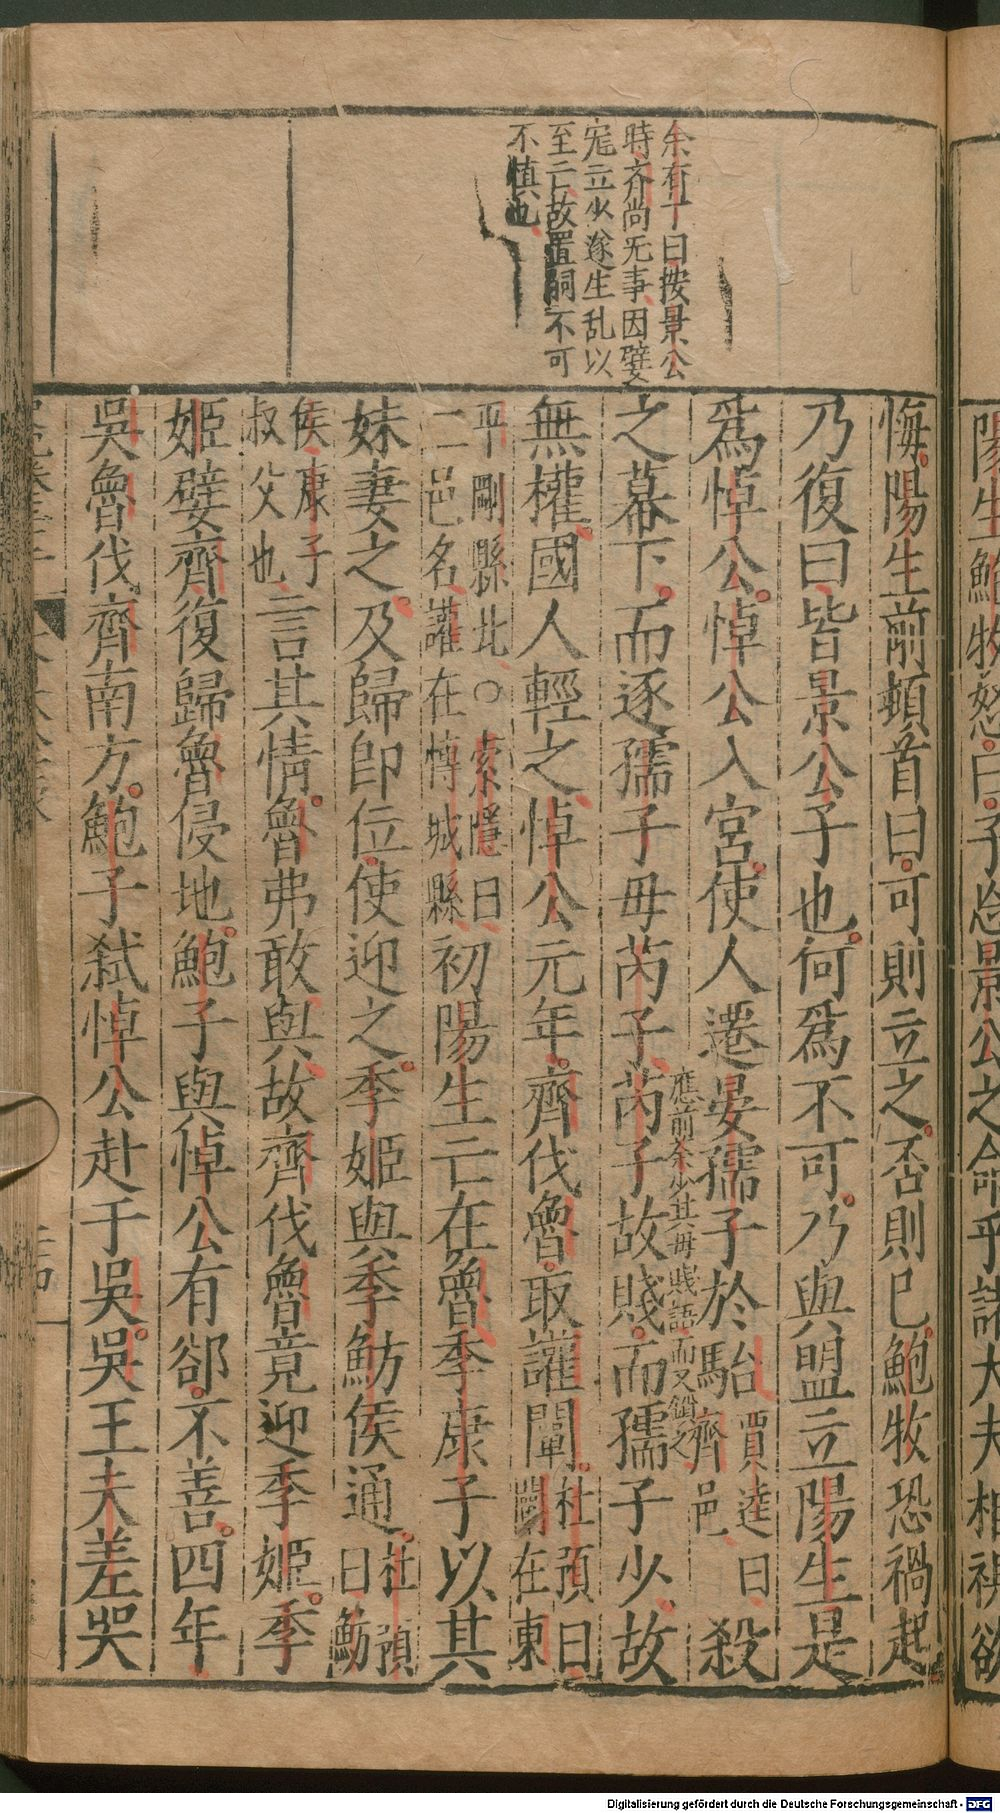 陽生鮑牧怒曰子忘景公之命乎諸大夫相視欲
余有丁曰按景公
時齐尚无事因嬖
寵立少遂生乱以
至亡故置嗣不可
不慎也
悔陽生前頓首曰可則立之否則已鮑牧恐禍起
乃復曰皆景公子也何爲不可乃與盟立陽生是
爲悼公悼公入宮使人遷晏孺子於駘賈逵曰齊邑殺
之幕下而逐孺子母芮子芮子故賤而孺子少故
應前荼少其母賤語而又鎖之
無權國人輕之悼公元年齊伐魯取讙闡杜預曰闡在東
平剛縣北○索隱曰二邑名讙在博城縣初陽生亡在魯季康子以其
妹妻之及歸卽位使迎之季姬與季魴侯通杜預曰魴
侯康子叔父也言其情魯弗敢與故齊伐魯竟迎季姬季
姬嬖齊復歸魯侵地鮑子與悼公有郤不善四年
吳魯伐齊南方鮑子弑悼公赴于吳吳王夫差哭
二十四
Digitalisierung gefördert durch die Deutsche Forschungsgemeinschaft - DFG